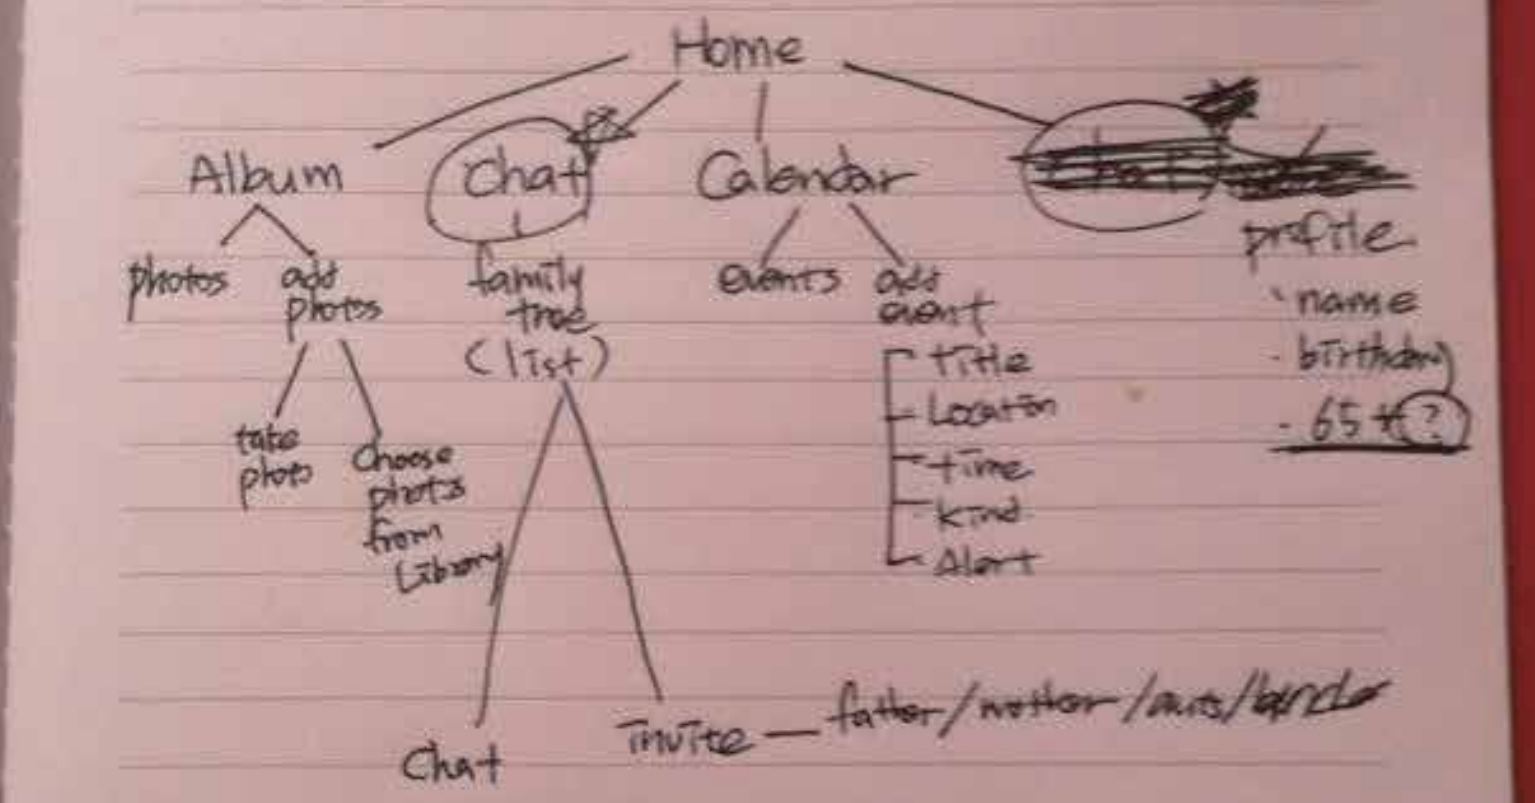 Home
Album
chat
Calendar
profile
photos
add
photos
family
tree
(list)
events
add
event
name
birthday
65 + ?
title
Location
time
kind
Alert
take
photo
choose
photos
from
Library
Chat
invite — father/mother/